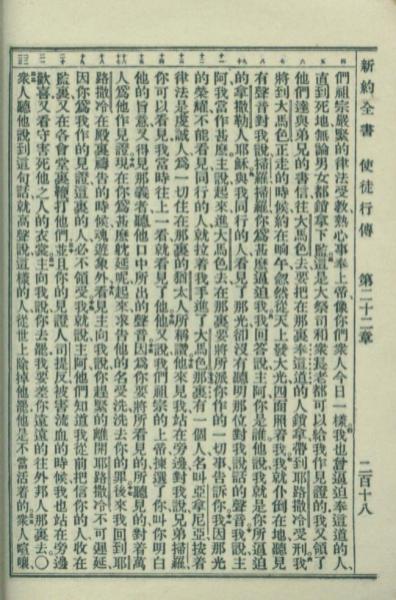 新約全書 使徒行傳 第二十二章 二百十八
們祖宗嚴緊的律法受教熱心事奉上帝像你們衆人今日一樣我也曾逼迫奉這道的人
直到死地無論男女都鎖拿下監這是大祭司和衆長老都可以給我作見證的我又領了
他們達與弟兄的書信往大馬色去要把在那裏奉這道的人鎖拿帶到耶路撒冷受刑我
將到大馬色正走的時候約在晌午忽然從天上發大光四面照着我我就仆倒在地聽見
有聲音對我說掃羅掃羅你爲甚麽逼迫我我回答說主阿你是誰他說我就是你所逼迫
的拿撒勒人耶穌與我同行的人看見了那光卻沒有聽明那位對我說話的聲音我說主
阿我當作甚麽主說起來進大馬色去在那裏要將所派你作的一切事告訴你我因那光
的榮耀不能看見同行的人就拉着我手進了大馬色那裏有一個人名叫亞拿尼亞按着
律法是虔誠人爲一切住在那裏的猶太人所稱讚他來見我站在旁邊對我說兄弟掃羅
你可以看見我當時往上一看就看見了他他又說我們祖宗的上帝揀選了你叫你明白
他的旨意又得見那義者聽他口中所出的聲音因爲你要將所看見的所聽見的對着萬
人爲他作見證現在你爲甚麽躭延呢起來求告他的名受洗洗去你的罪後來我回到耶
路撒冷在殿裏禱告的時候魂遊象外看見主向我說你趕緊的離開耶路撒冷不可遲延
因你爲我作的見證這裏的人必不領受我就說主阿他們知道我從前把信你的人收在
監裏又在各會堂裏鞭打他們並且你的見證人司提反被害流血的時候我也站在旁邊
歡喜又看守害死他之人的衣裳主向我說你去罷我要差你遠遠的往外邦人那裏去〇
衆人聽他說到這句話就高聲說這樣的人從世上除掉他罷他是不當活着的衆人喧嚷